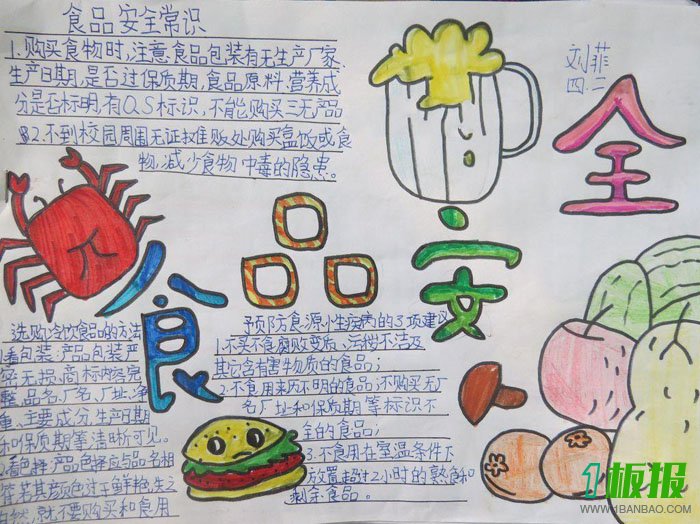 食品安全常识
1.购买食物时,注意食品包装有无生产厂家、
生产日期,是否过保质期,食品原料、营养成
分是否标明,有QS标识,不能购买三无产品
2.不到校园周围无证摊贩处购买盒饭或食
物,减少食物中毒的隐患。
刘菲
四.二
食品安全
选购冷饮食品的方法
看包装:产品包装严
密无损,商标内容完
整,品名、厂名、厂址、净
量、主要成分、生产日期
和保质期等清晰可见。
看色泽:产品色择应与品名相
符,若其颜色过于鲜艳,失之
自然,就不要购买和食用
预防食源小性疾病的3项建议
1.不买不食腐败变质、污秽不洁及
其它含有害物质的食品;
2.不食用来历不明的食品;不购买无厂
名厂址和保质期等标识不
全的食品;
3.不食用在室温条件下
放置超过2小时的熟食和
剩余食品。
1板报
WWW.1BANBAO.COM